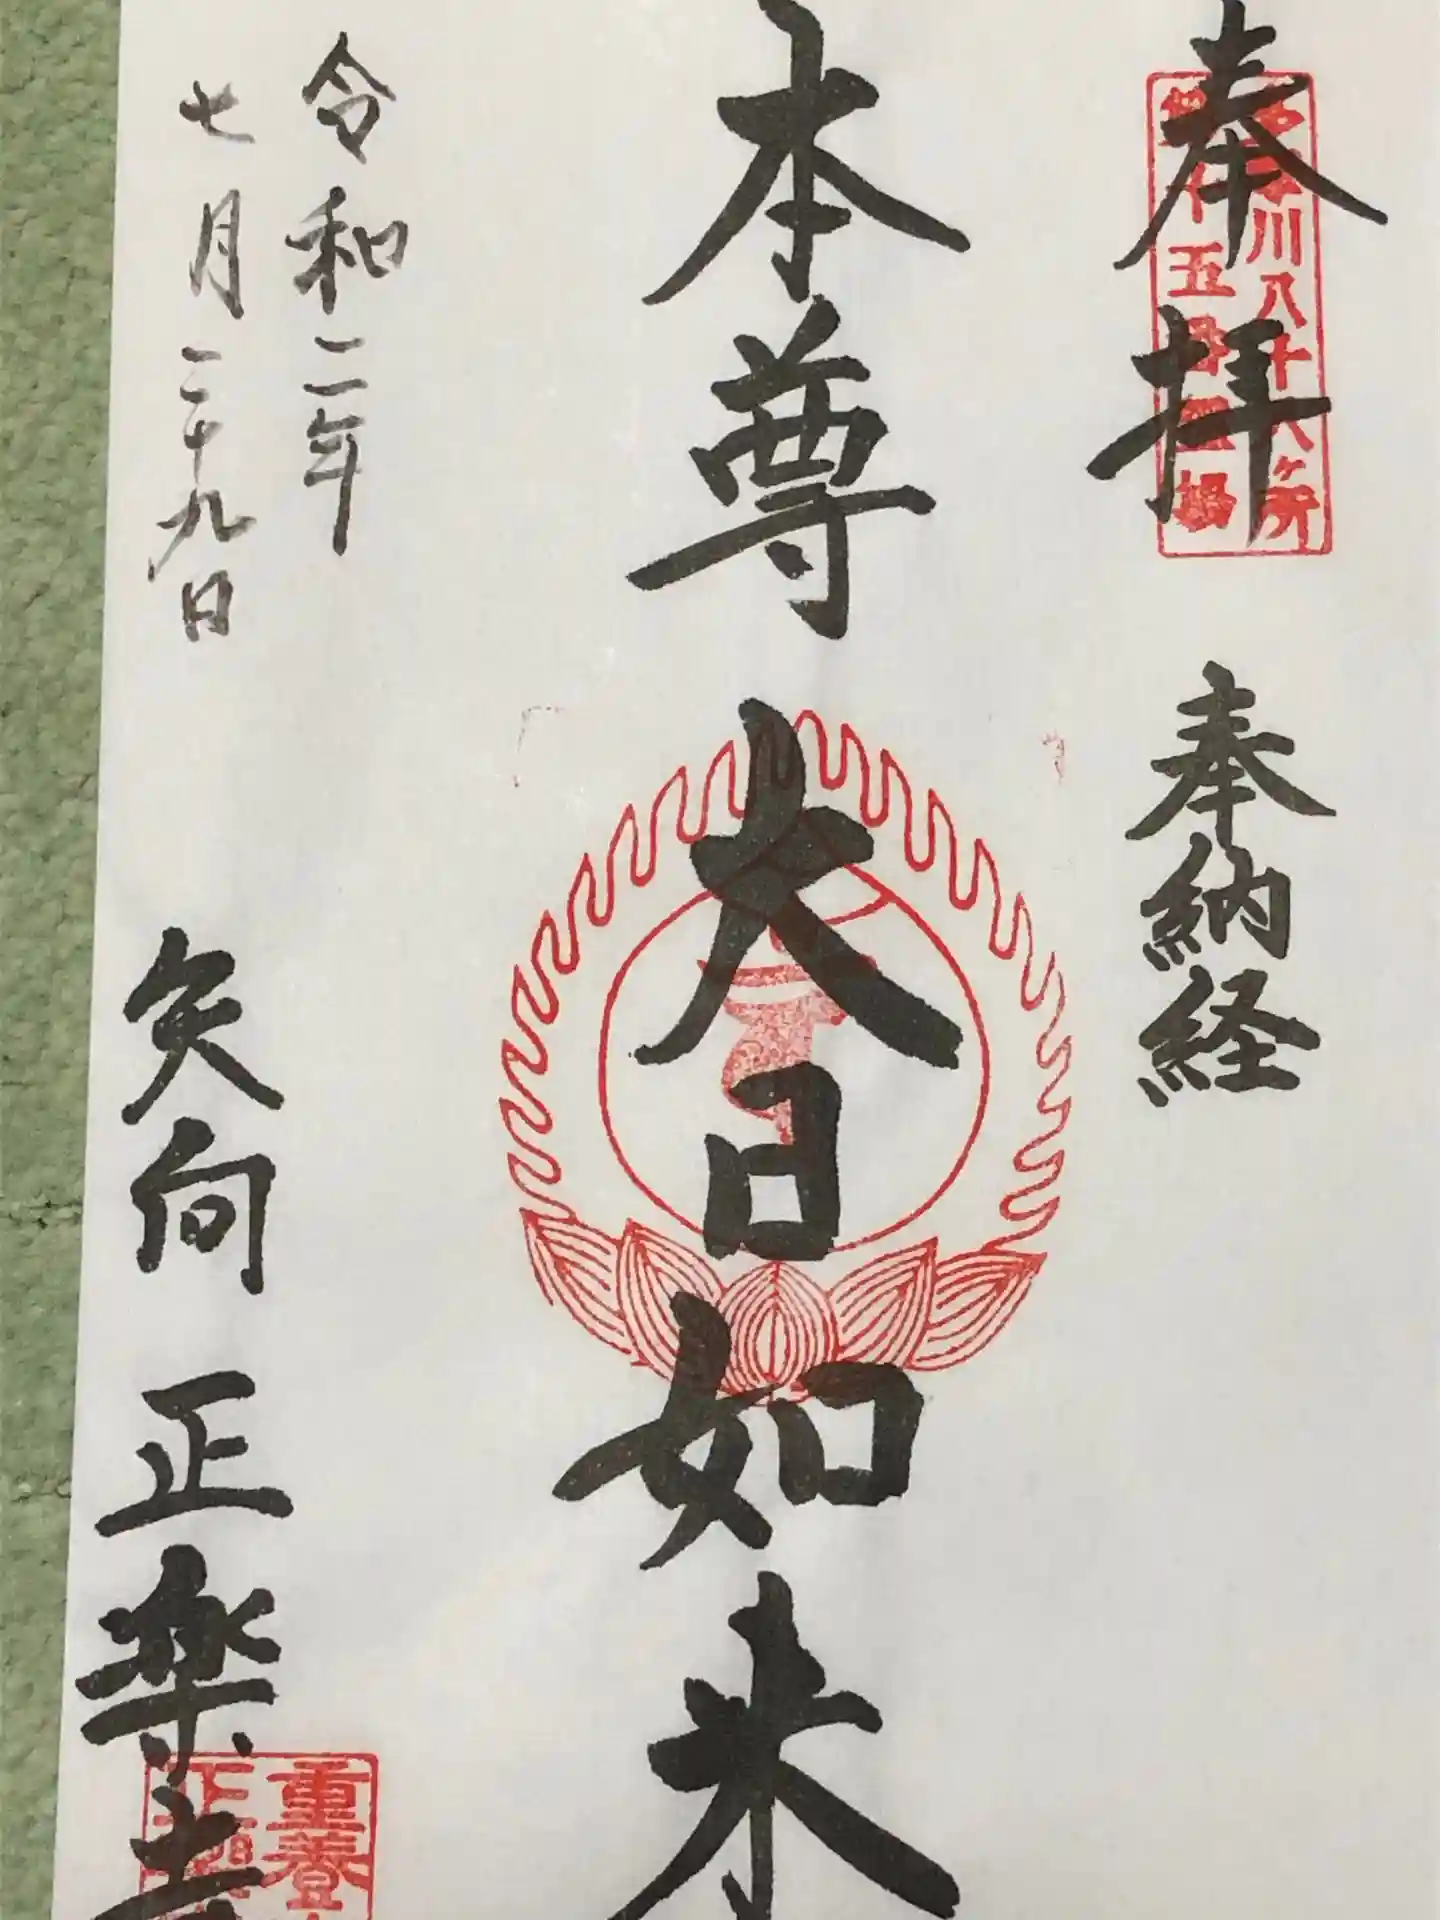 奉拝
玉川八十八ヶ所
五番霊場
奉納経
本尊 大日如来
令和二年
七月二十九日
矢向 正楽寺
重養
正